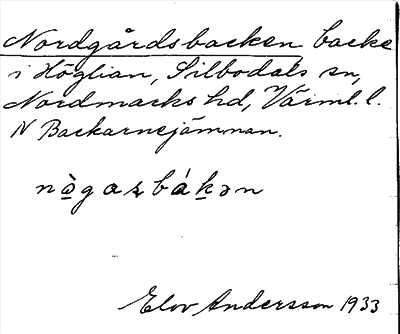 Nordgårdsbacken backe
i Höglian, Silbodals sn,
Nordmarks hd, Värml. l.
N Backarnejämnan.
Elov Andersson 1933